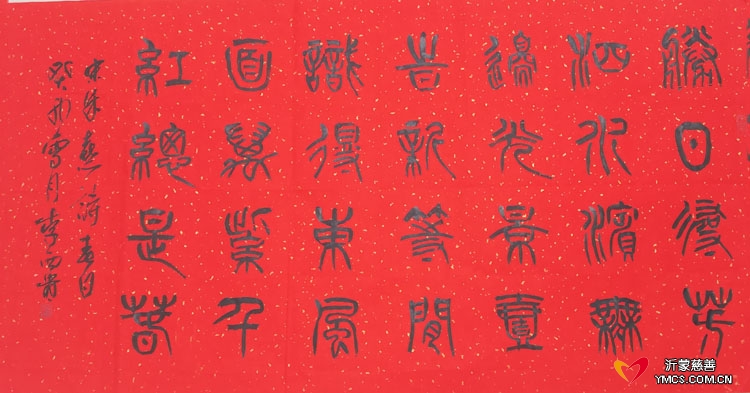 勝日尋芳
泗水濱無
邊光景壹
旹新等閒
識得東風
面萬紫千
紅總是春
宋朱熹詩春日
癸卯雪月李西
沂蒙慈善
YMCS.COM.CN